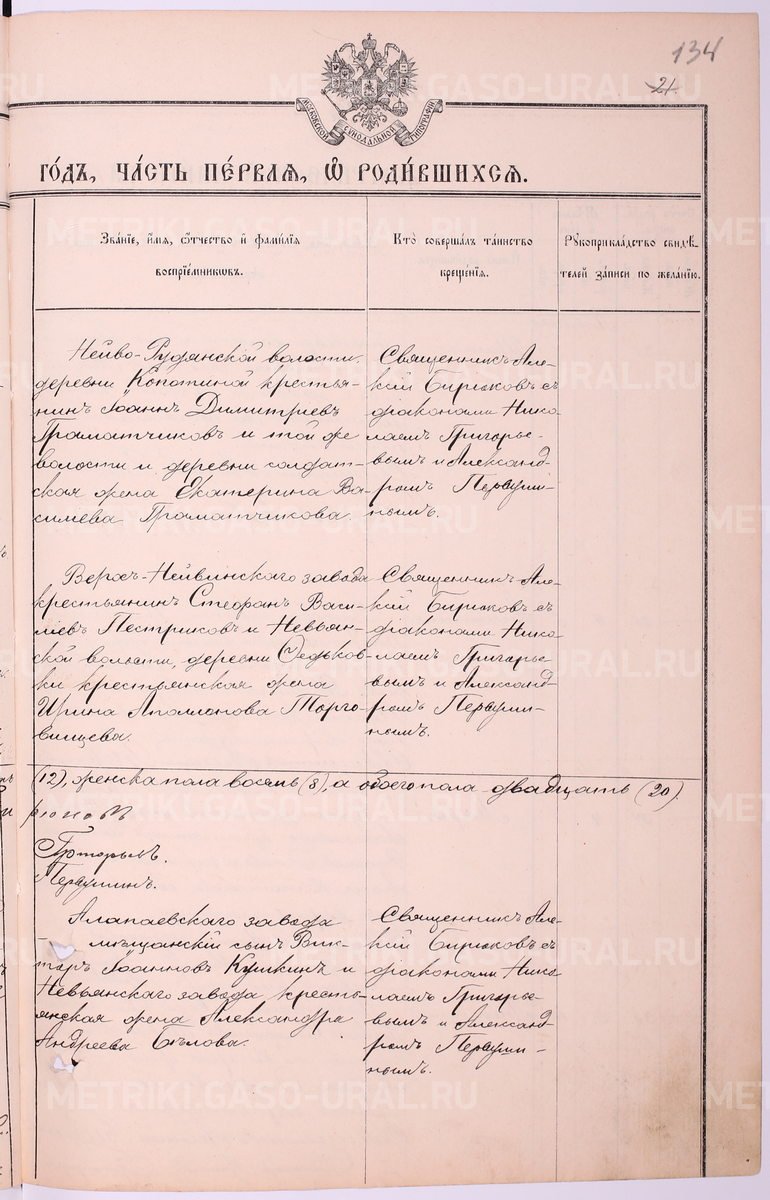 134
21.
МОСКОВСКОЙ СѴНОДАЛЬНОЙ ТИПОГРАФІИ
го́дъ, ча́сть пе́рваѧ, ѡ҆ роди́вшихсѧ.
Зва́нїе, и҆́мѧ, ѻ҆́тчество и҆ фами́лїѧ
воспрїе́мникѡвъ.
Кто̀ соверша́лъ та́инство
креще́нїѧ.
Рꙋкоприкла́дство свидѣ́-
телей за́писи по жела́нїю.
Нейво-Рудянской волости,
деревни Копотиной крестья-
нинъ Іоаннъ Димитріевъ
Граматчиковъ и той же
волости и деревни солдат-
ская жена Екатерина Ва-
сильева Граматчикова.
Священникъ Але-
ксій Бирюковъ съ
діаконами Нико-
лаемъ Григорье-
вымъ и Александ-
ромъ Первуши-
нымъ.
Верхъ-Нейвинскаго завода
крестьянинъ Стефанъ Васи-
ліевъ Пестриковъ и Невьян-
ской волости, деревни Ѳедьков-
ки крестьянская жена
Ирина Аполлонова Торго-
вищева.
Священникъ Але-
ксій Бирюковъ съ
діаконами Нико-
лаемъ Григорье-
вымъ и Александ-
ромъ Первуши-
нымъ.
(12), женска пола восемь (8), а обоего пола двадцать (20).
рюковъ
Первушинъ.
Алапаевскаго завода
мѣщанскій сынъ Вик-
торъ Іоанновъ Кушкинъ и
Невьянскаго завода кресть-
янская жена Александра
Андреева Бѣлова.
Священникъ Але-
ксій Бирюковъ съ
діаконами Нико-
лаемъ Григорье-
вымъ и Александ-
ромъ Первуши-
нымъ.
METRIKI.GASO-URAL.RU